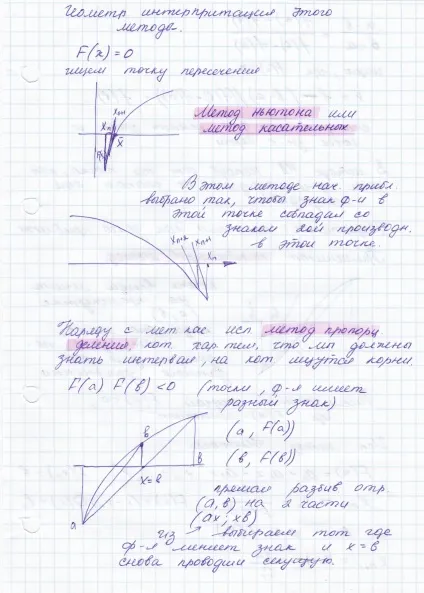 Геометр интерпритация этого
метода.
F(x) = 0
ищем точку пересечения
xn+1
xn
x̄
Метод ньютона или
метод касательных
В этом методе нач. прибл.
выбрано так, чтобы знак ф-и в
этой точке совпадал со
знаком 2ой производн.
в этой точке.
xn+2 xn+1
xn
Наряду с мет кас. исп метод пропорц
деления, кот. хар тем, что мы должны
знать интервал, на кот ищутся корни.
F(a) F(в) <0 (точки, ф-я имеет
разный знак)
(a, F(a))
(в, F(в))
в
x=в
B
a
прямая разбив отр.
(a, в) на 2 части
(ax; xв)
из → выбираем тот где
ф-я меняет знак и x=в
снова проводим секущую.